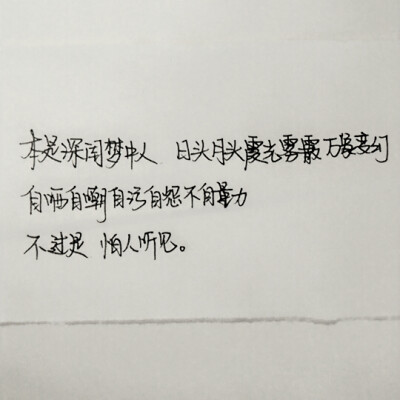 本是深闺梦中人 日头月头霞光雾霰万般变幻
自哂自嘲自污自怨不自量力
不过是 怕人听见。